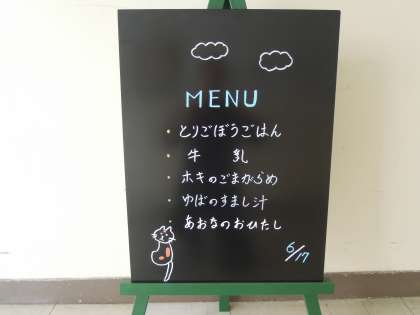 MENU
・とりごぼうごはん
・牛 乳
・ホキのごまがらめ
・ゆばのすまし汁
・あおなのおひたし
6/17